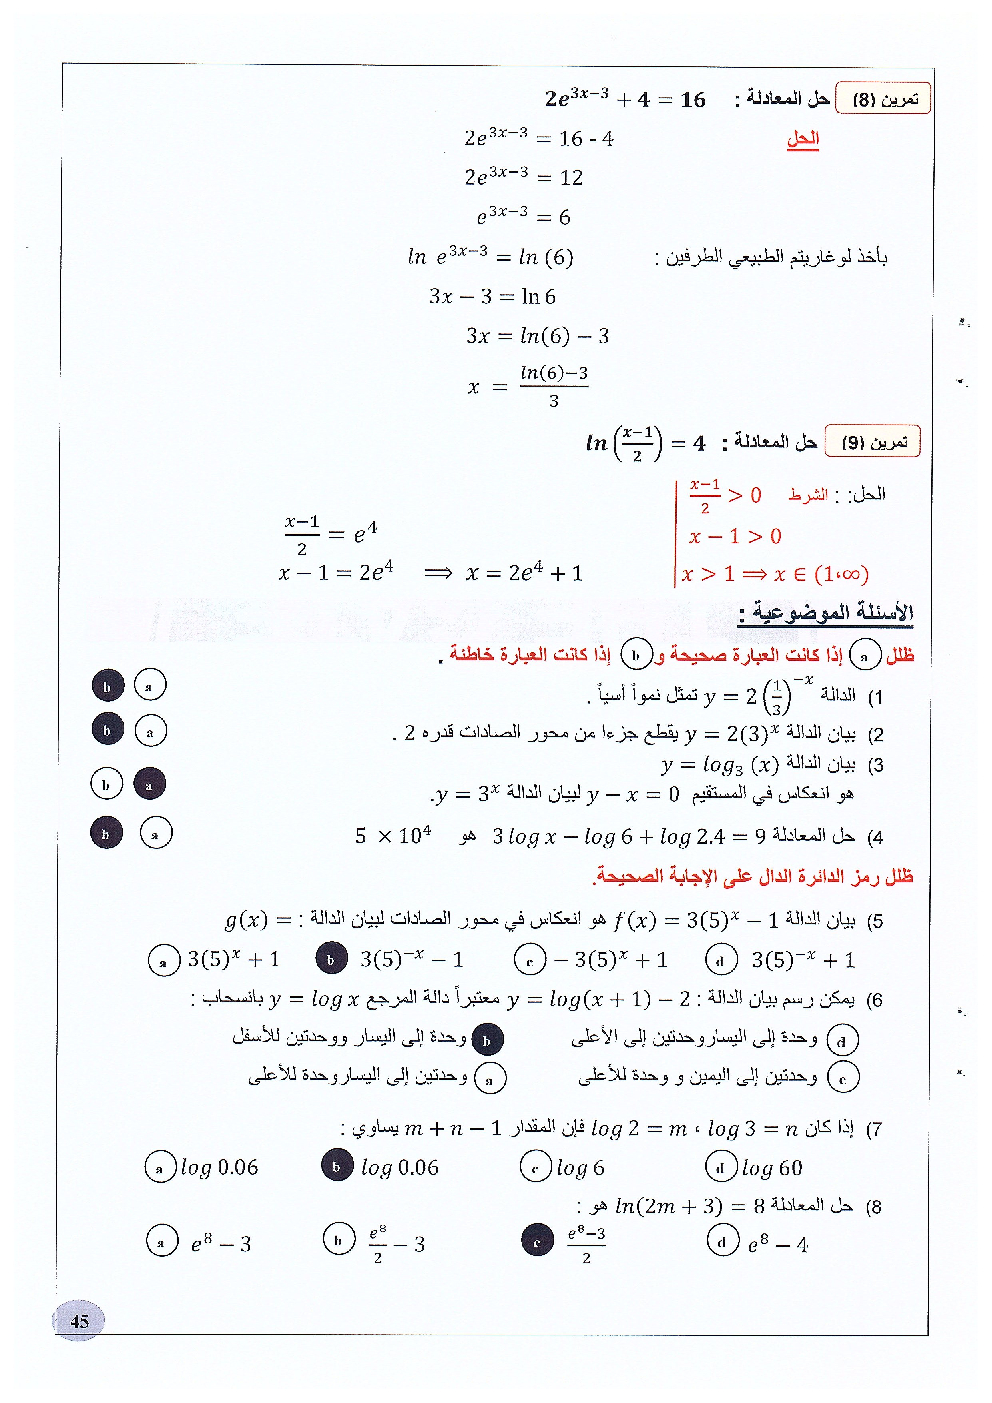 تمرين (8) حل المعادلة : 2e^{3x−3} + 4 = 16
الحل 2e^{3x−3} = 16 - 4
2e^{3x−3} = 12
e^{3x−3} = 6
بأخذ لوغاريتم الطبيعي الطرفين : ln e^{3x−3} = ln (6)
3x − 3 = ln 6
3x = ln(6) − 3
x = \frac{ln(6)−3}{3}
تمرين (9) حل المعادلة : ln(\frac{x−1}{2}) = 4
الحل: : الشرط \frac{x−1}{2} > 0
x − 1 > 0
x > 1 ⟹ x ∈ (1،∞)
\frac{x−1}{2} = e^4
x − 1 = 2e^4 ⟹ x = 2e^4 + 1
الأسئلة الموضوعية :
ظلل (a) إذا كانت العبارة صحيحة و (b) إذا كانت العبارة خاطئة .
1) الدالة y = 2 (\frac{1}{3})^{−x} تمثل نمواً أسياً . a b
2) بيان الدالة y = 2(3)^x يقطع جزءا من محور الصادات قدره 2 . a b
3) بيان الدالة y = log_3 (x)
هو انعكاس في المستقيم y − x = 0 لبيان الدالة y = 3^x. a b
4) حل المعادلة 3 log x − log 6 + log 2.4 = 9 هو 5 × 10^4 a b
ظلل رمز الدائرة الدال على الإجابة الصحيحة.
5) بيان الدالة f(x) = 3(5)^x − 1 هو انعكاس في محور الصادات لبيان الدالة : g(x) =
a 3(5)^x + 1 b 3(5)^{−x} − 1 c − 3(5)^x + 1 d 3(5)^{−x} + 1
6) يمكن رسم بيان الدالة : y = log(x + 1) − 2 معتبراً دالة المرجع y = log x بانسحاب :
d وحدة إلى اليسار وحدتين إلى الأعلى b وحدة إلى اليسار ووحدتين للأسفل
c وحدتين إلى اليمين و وحدة للأعلى a وحدتين إلى اليسار وحدة للأعلى
7) إذا كان log 2 = m ، log 3 = n فإن المقدار m + n − 1 يساوي :
a log 0.06 b log 0.06 c log 6 d log 60
8) حل المعادلة ln(2m + 3) = 8 هو :
a e^8 − 3 b \frac{e^8}{2} − 3 c \frac{e^8−3}{2} d e^8 − 4
45